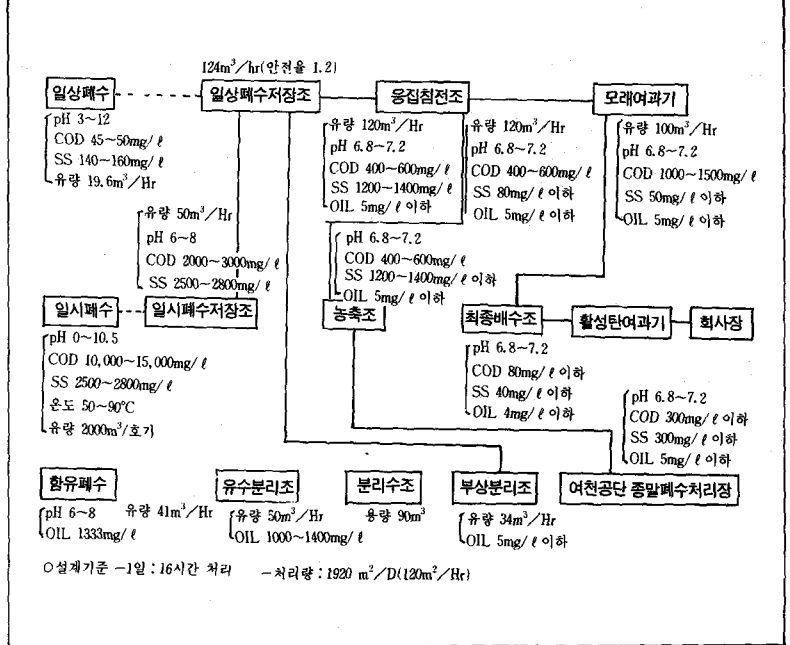 124m³/hr(안전율 1.2)
일상폐수
일상폐수저장조
응집침전조
모래여과기
pH 3~12
COD 45~50mg/ℓ
SS 140~160mg/ℓ
유량 19.6m³/Hr
유량 120m³/Hr
pH 6.8~7.2
COD 400~600mg/ℓ
SS 1200~1400mg/ℓ
OIL 5mg/ℓ 이하
유량 120m³/Hr
pH 6.8~7.2
COD 400~600mg/ℓ
SS 80mg/ℓ 이하
OIL 5mg/ℓ 이하
유량 100m³/Hr
pH 6.8~7.2
COD 1000~1500mg/ℓ
SS 50mg/ℓ 이하
OIL 5mg/ℓ 이하
유량 50m³/Hr
pH 6~8
COD 2000~3000mg/ℓ
SS 2500~2800mg/ℓ
pH 6.8~7.2
COD 400~600mg/ℓ
SS 1200~1400mg/ℓ 이하
OIL 5mg/ℓ 이하
일시폐수
일시폐수저장조
농축조
최종배수조
활성탄여과기
회사장
pH 0~10.5
COD 10,000~15,000mg/ℓ
SS 2500~2800mg/ℓ
온도 50~90℃
유량 2000m³/호기
pH 6.8~7.2
COD 80mg/ℓ 이하
SS 40mg/ℓ 이하
OIL 4mg/ℓ 이하
pH 6.8~7.2
COD 300mg/ℓ 이하
SS 300mg/ℓ 이하
OIL 5mg/ℓ 이하
함유폐수
유수분리조
분리수조
부상분리조
여천공단 종말폐수처리장
pH 6~8 유량 41m³/Hr
OIL 1333mg/ℓ
유량 50m³/Hr
OIL 1000~1400mg/ℓ
용량 90m³
유량 34m³/Hr
OIL 5mg/ℓ 이하
○설계기준 -1일 : 16시간 처리 -처리량 : 1920 m²/D(120m²/Hr)